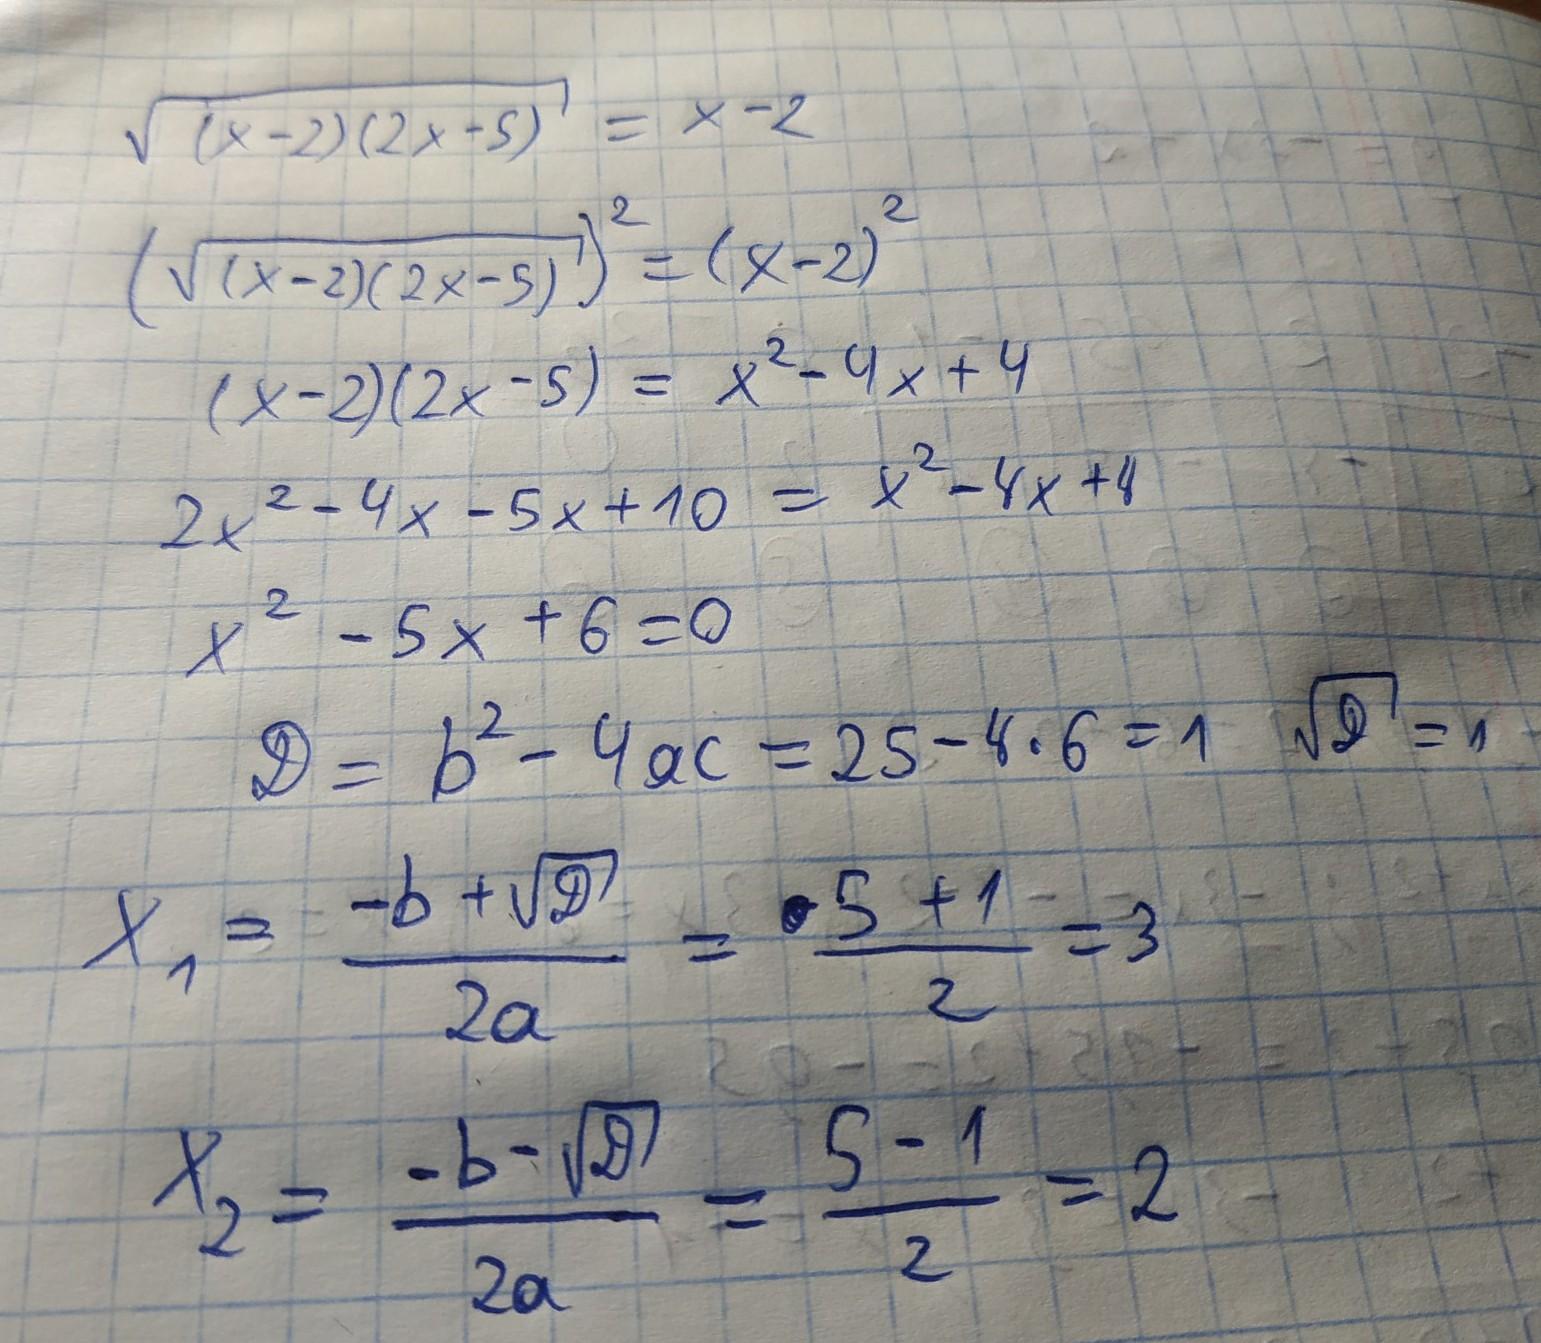 √(x-2)(2x-5) = x-2
(√(x-2)(2x-5))² = (x-2)²
(x-2)(2x-5) = x²-4x+4
2x²-4x-5x+10 = x²-4x+4
x²-5x+6=0
D = b²-4ac = 25-4·6=1 √D=1
X₁ = (-b+√D)/2a = (5+1)/2 = 3
X₂ = (-b-√D)/2a = (5-1)/2 = 2